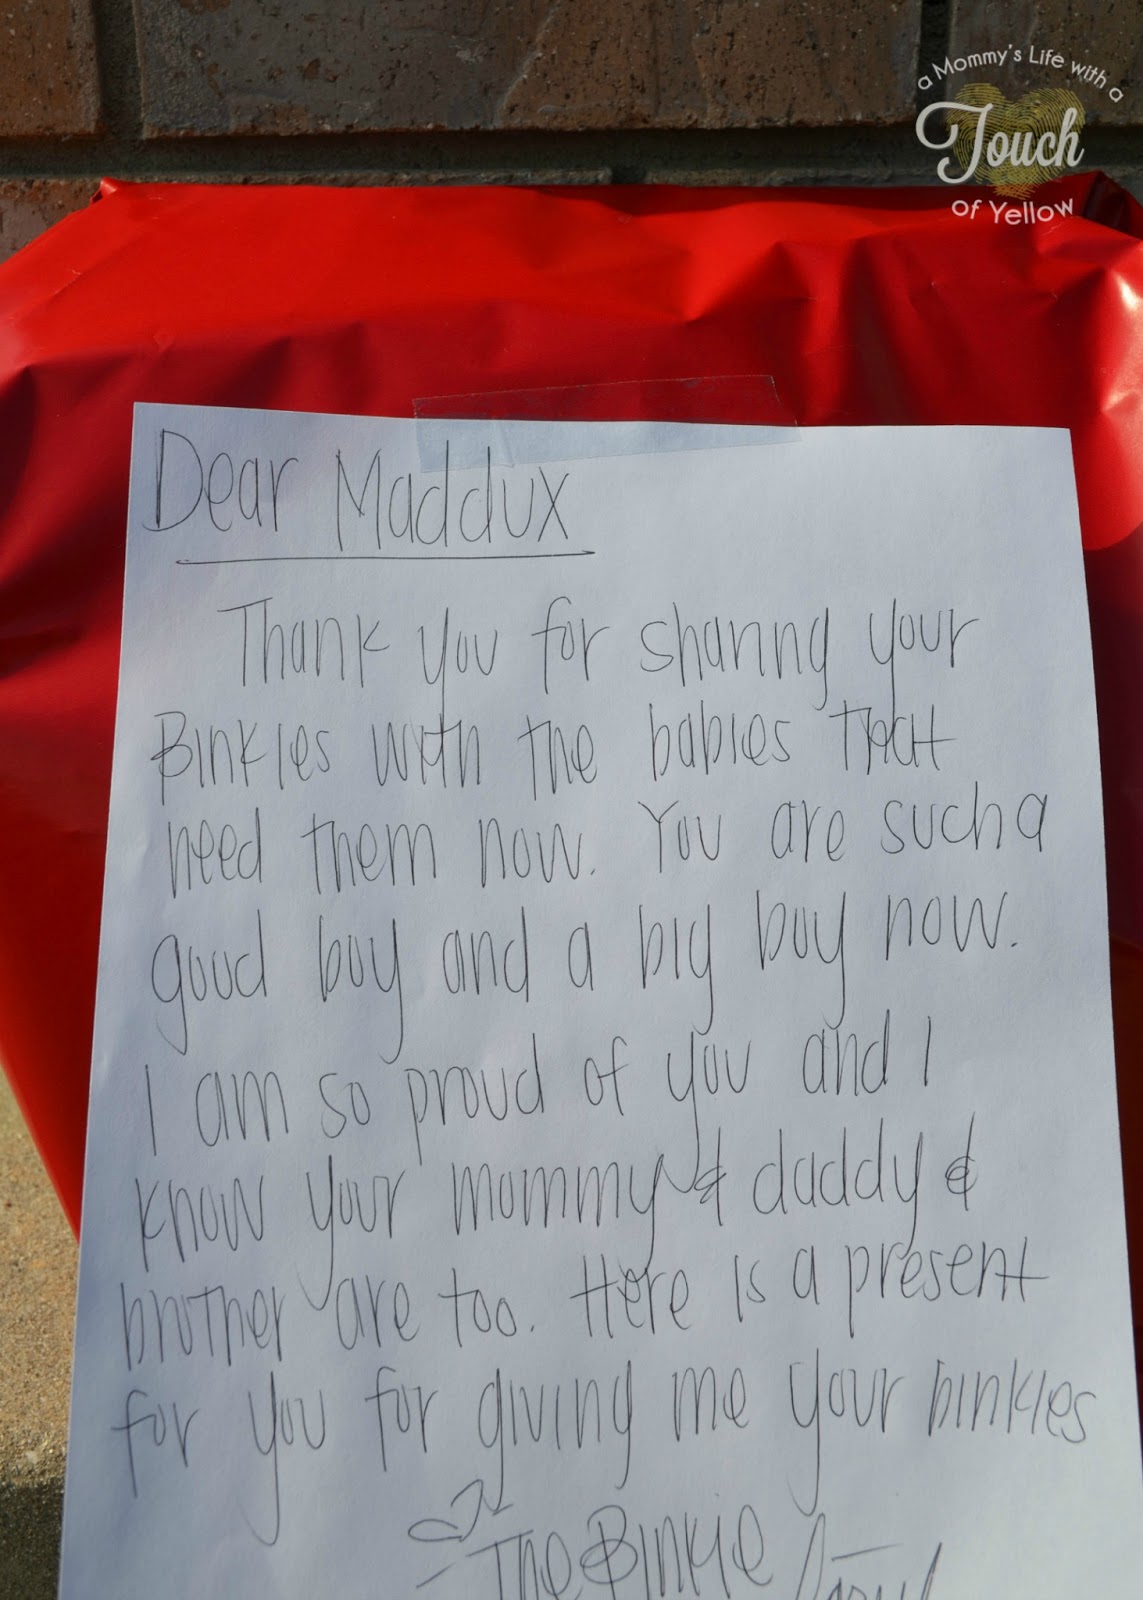 a Mommy's Life with a
Touch
of Yellow
Dear Maddux
Thank you for sharing your
Binkies with the babies that
need them now. You are such a
good boy and a big boy now.
I am so proud of you and I
know your mommy & daddy &
brother are too. Here is a present
for you for giving me your binkies
The Binkie